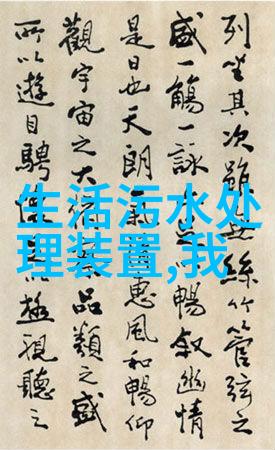 列坐其次雖無絲竹管弦之
盛一觴一詠以暢敘幽情
是日也天朗氣惠風和暢仰
觀宇宙之大品類之盛
所以遊目騁極視聽之
生活污水处
理装置,我